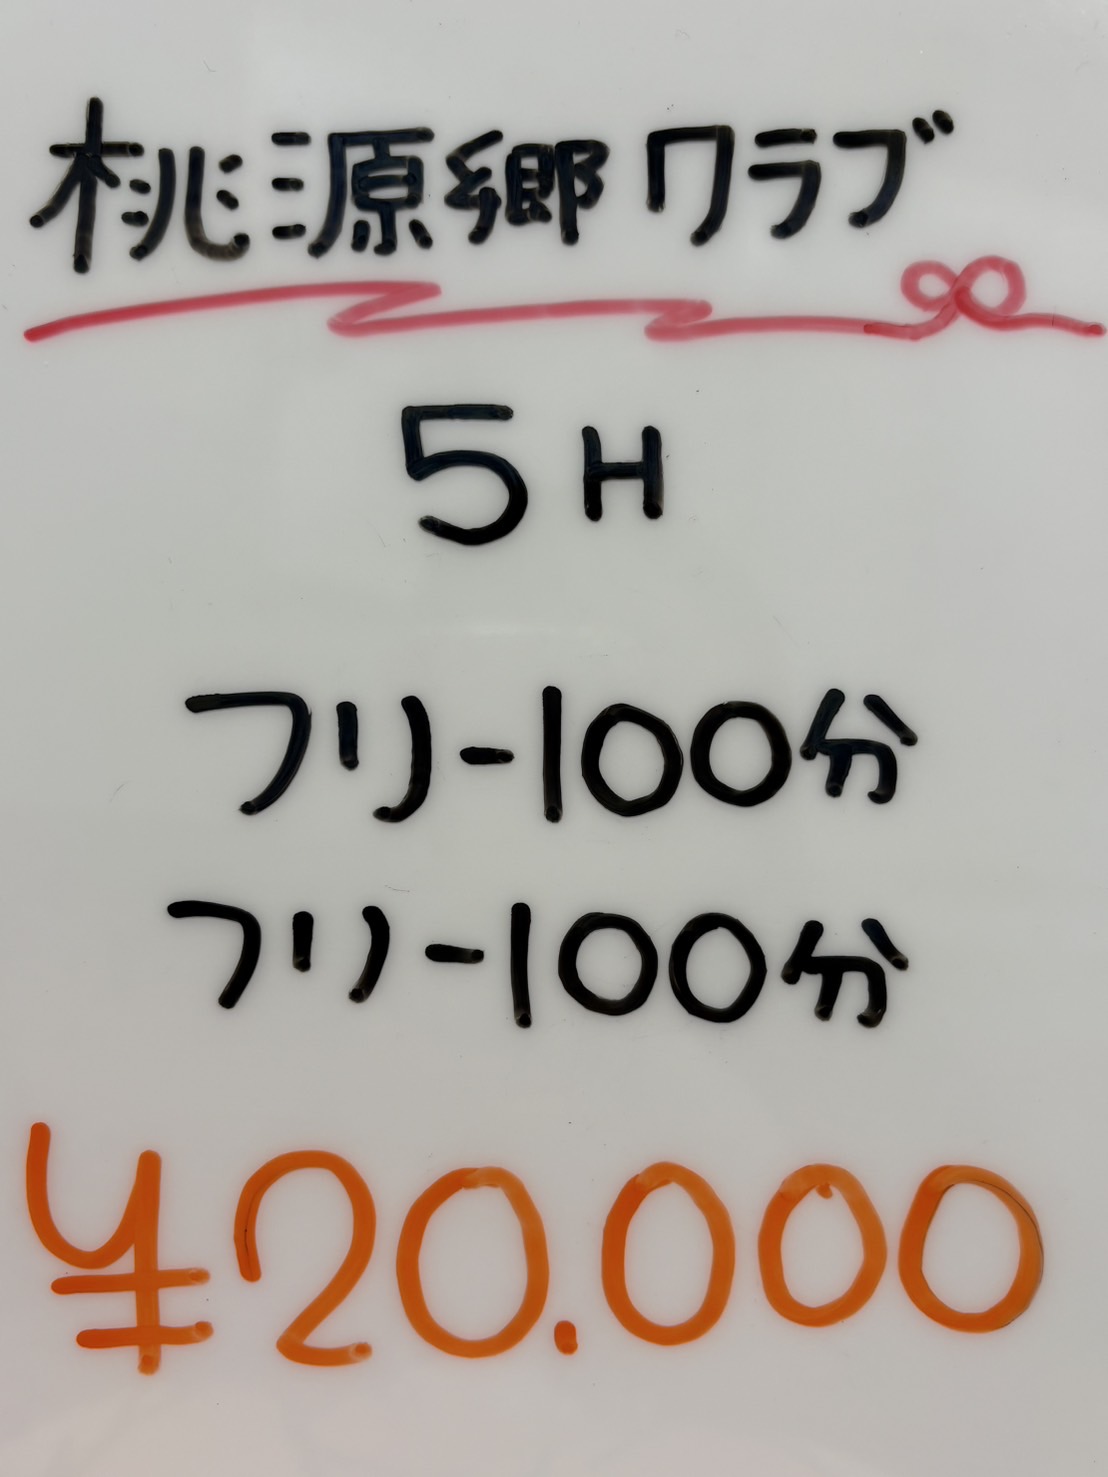 桃源郷ワラブ
5H
フリー100分
フリー100分
¥20.000